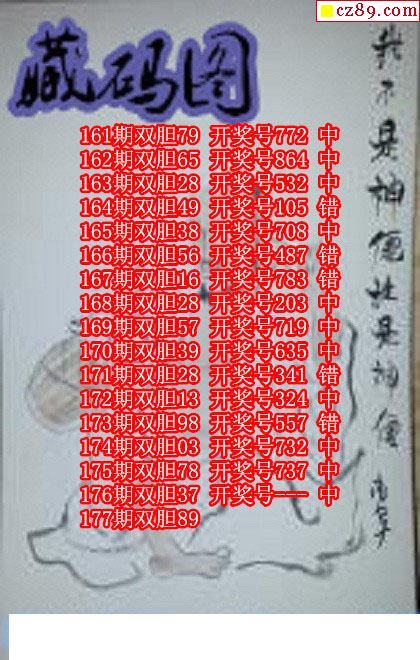 cz89.com
藏码图
161期双胆79 开奖号772 中
162期双胆65 开奖号864 中
163期双胆28 开奖号532 中
164期双胆49 开奖号105 错
165期双胆38 开奖号708 中
166期双胆56 开奖号487 错
167期双胆16 开奖号783 错
168期双胆28 开奖号203 中
169期双胆57 开奖号719 中
170期双胆39 开奖号635 中
171期双胆28 开奖号341 错
172期双胆13 开奖号324 中
173期双胆98 开奖号557 错
174期双胆03 开奖号732 中
175期双胆78 开奖号737 中
176期双胆37 开奖号--- 中
177期双胆89
我不是神仙杜是神仙